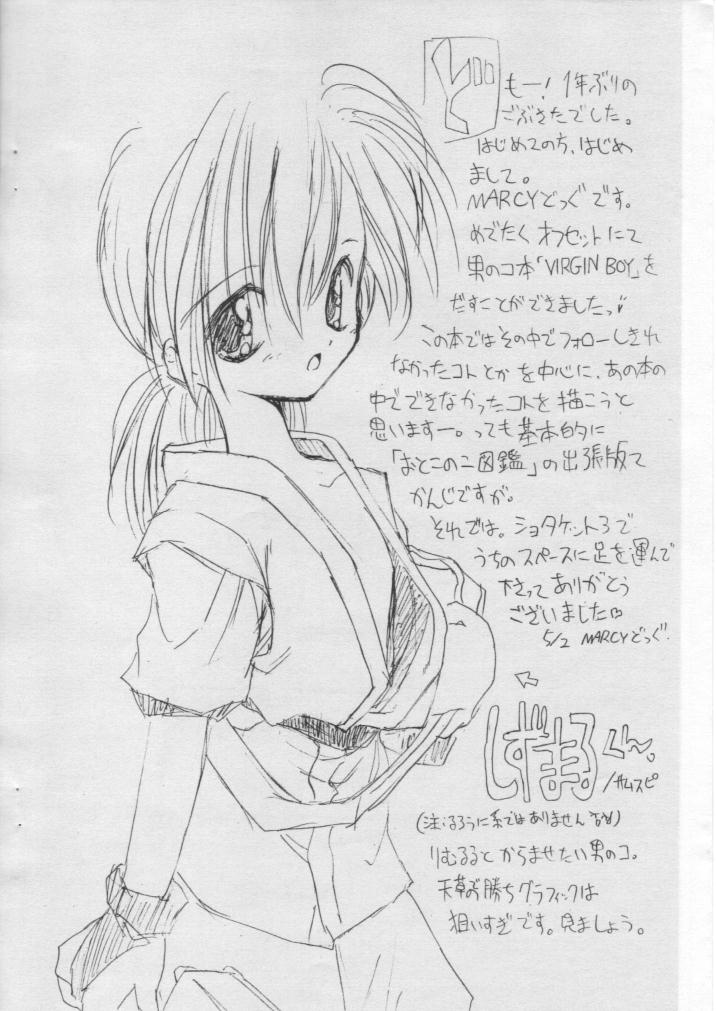 どもー！ 1年ぶりの
ごぶさたでした。
はじめてのち、はじめ
まして。
MARCYどっぐです。
めでたくオフセットにて
男のコ本「VIRGIN BOY」を
だすことができましたっ
この本ではその中でフォローしきれ
なかったコトとかを中心に、あの本の
中でできなかったコトを描こうと
思いますー。っても基本的に
「おとこのこ図鑑」の出張版て
かんじですが。
それでは。ショタケット3で
うちのスペースに足を運んで
下さってありがとう
ございました
5/2 MARCYどっぐ.
しずまるくん。
/サムスピ
(注:るろうに系ではありません)
りむるるとからませたい男のコ。
天草お勝ちグラフィックは
狙いすぎです。見ましょう。